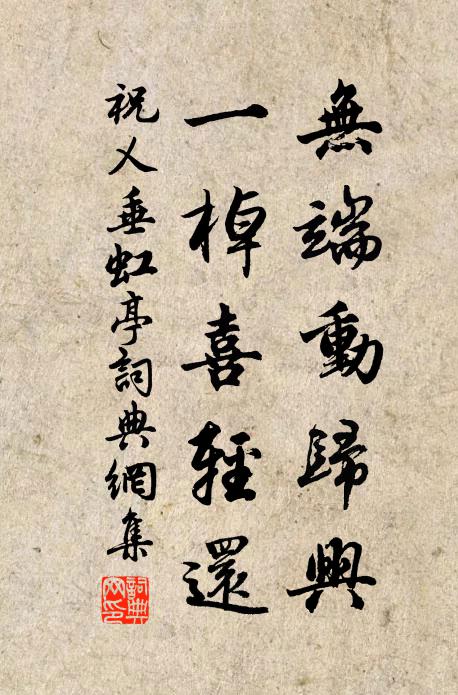 無端動歸興
一棹喜輕還
祝乂垂虹亭詞典網集
詞典網印